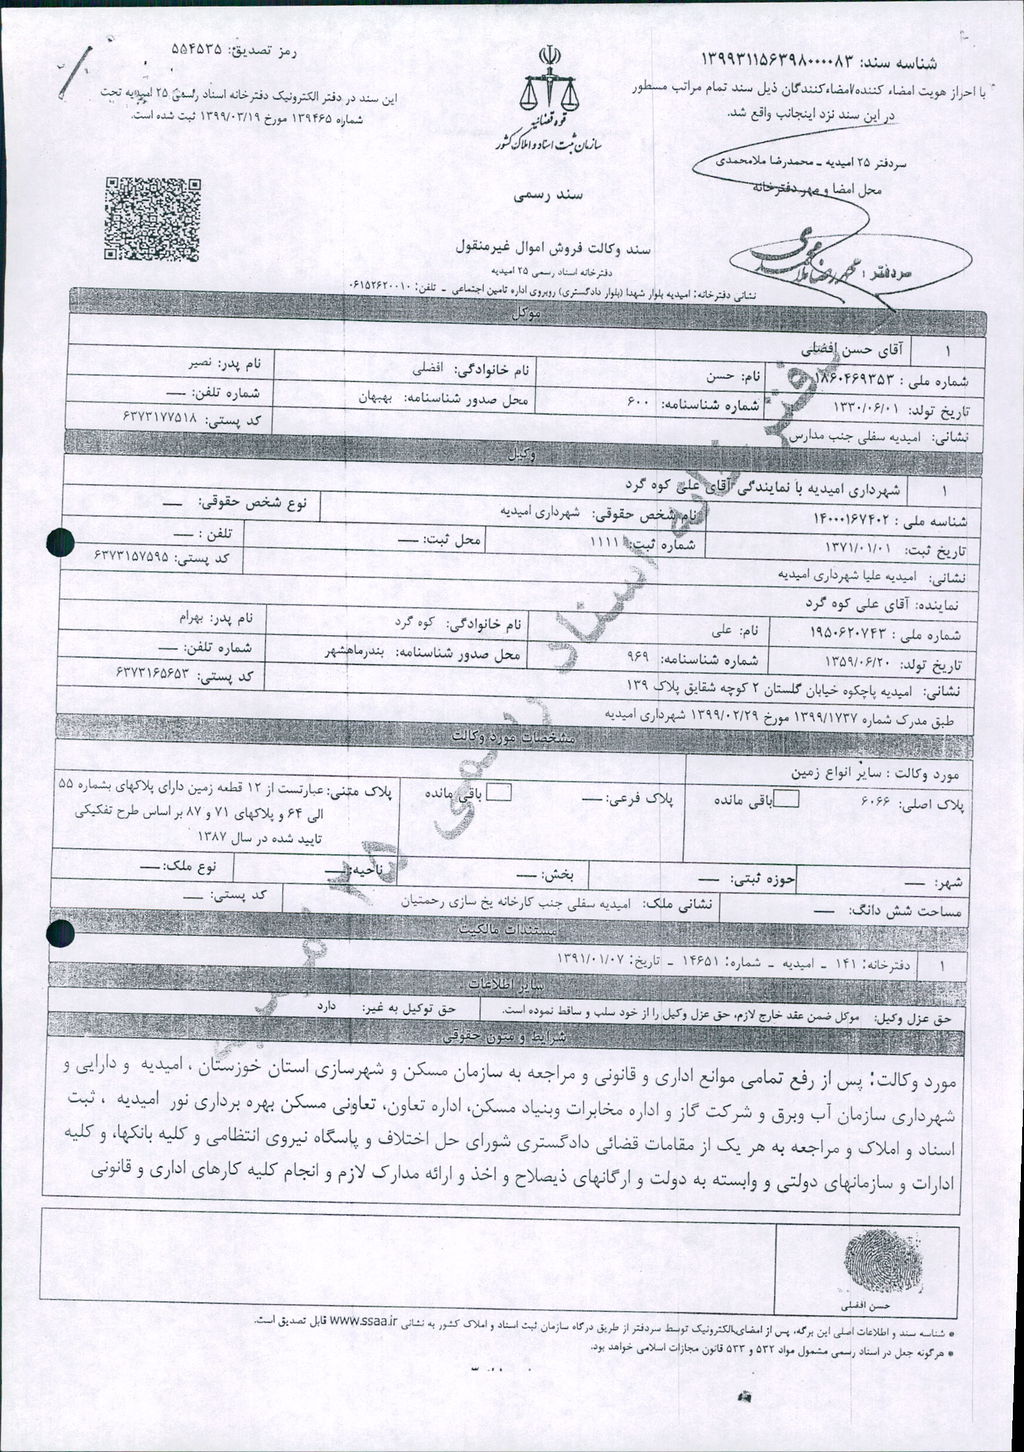 شناسه سند: ۱۳۹۹۳۱۱۵۶۳۹۸۰۰۰۰۸۳
با احراز هویت امضاء کننده/امضاءکنندگان ذیل سند تمام مراتب مسطور
در این سند نزد اینجانب واقع شد.
سردفتر ۲۵ امیدیه - محمدرضا ملامحمدی
محل امضا و مهر دفترخانه
سردفتر :
قوه قضائیه
سازمان ثبت اسناد و املاک کشور
سند رسمی
سند وکالت فروش اموال غیرمنقول
دفترخانه اسناد رسمی ۲۵ امیدیه
رمز تصدیق: ۵۵۴۵۳۵
این سند در دفتر الکترونیک دفترخانه اسناد رسمی ۲۵ امیدیه تحت
شماره ۱۳۹۴۶۵ مورخ ۱۳۹۹/۰۳/۱۹ ثبت شده است.
نشانی دفترخانه: امیدیه بلوار شهدا (بلوار دادگستری) روبروی اداره تامین اجتماعی - تلفن: ۰۶۱۵۲۶۲۰۰۱۰
موکل
۱ آقای حسن افضلی
شماره ملی : ۱۸۶۰۴۶۹۳۵۳ نام: حسن نام خانوادگی: افضلی نام پدر: نصیر
تاریخ تولد: ۱۳۳۰/۰۶/۰۱ شماره شناسنامه: ۶۰۰ محل صدور شناسنامه: بهبهان شماره تلفن: —
نشانی: امیدیه سفلی جنب مدارس کد پستی: ۶۳۷۳۱۷۷۵۱۸
وکیل
۱ شهرداری امیدیه با نمایندگی آقای علی کوه گرد
شناسه ملی : ۱۴۰۰۰۱۶۷۴۰۲ نام شخص حقوقی: شهرداری امیدیه نوع شخص حقوقی: —
تاریخ ثبت: ۱۳۷۱/۰۱/۰۱ شماره ثبت: ۱۱۱۱ محل ثبت: — تلفن : —
نشانی: امیدیه علیا شهرداری امیدیه کد پستی: ۶۳۷۳۱۵۷۵۹۵
نماینده: آقای علی کوه گرد
شماره ملی : ۱۹۵۰۶۲۰۷۴۳ نام: علی نام خانوادگی: کوه گرد نام پدر: بهرام
تاریخ تولد: ۱۳۵۹/۰۶/۲۰ شماره شناسنامه: ۹۶۹ محل صدور شناسنامه: بندرماهشهر شماره تلفن: —
نشانی: امیدیه پاچکوه خیابان گلستان ۲ کوچه شقایق پلاک ۱۳۹ کد پستی: ۶۳۷۳۱۶۵۶۵۳
طبق مدرک شماره ۱۳۹۹/۱۷۳۷ مورخ ۱۳۹۹/۰۲/۲۹ شهرداری امیدیه
مشخصات مورد وکالت
مورد وکالت : سایر انواع زمین
پلاک اصلی: ۶۰۶۶ باقی مانده پلاک فرعی: — باقی مانده پلاک متنی: عبارتست از ۱۲ قطعه زمین دارای پلاکهای بشماره ۵۵
الی ۶۴ و پلاکهای ۷۱ و ۸۷ بر اساس طرح تفکیکی
تایید شده در سال ۱۳۸۷
شهر: — حوزه ثبتی: — بخش: — ناحیه: — نوع ملک: —
مساحت شش دانگ: — نشانی ملک: امیدیه سفلی جنب کارخانه یخ سازی رحمتیان کد پستی: —
مستندات مالکیت
۱ دفترخانه: ۱۴۱ - امیدیه - شماره: ۱۴۶۵۱ - تاریخ: ۱۳۹۱/۰۱/۰۷
سایر اطلاعات
حق عزل وکیل: موکل ضمن عقد خارج لازم، حق عزل وکیل را از خود سلب و ساقط نموده است. حق توکیل به غیر: دارد
شرایط و متون حقوقی
مورد وکالت: پس از رفع تمامی موانع اداری و قانونی و مراجعه به سازمان مسکن و شهرسازی استان خوزستان ، امیدیه و دارایی و
شهرداری سازمان آب وبرق و شرکت گاز و اداره مخابرات وبنیاد مسکن، اداره تعاون، تعاونی مسکن بهره برداری نور امیدیه ، ثبت
اسناد و املاک و مراجعه به هر یک از مقامات قضائی دادگستری شورای حل اختلاف و پاسگاه نیروی انتظامی و کلیه بانکها، و کلیه
ادارات و سازمانهای دولتی و وابسته به دولت و ارگانهای ذیصلاح و اخذ و ارائه مدارک لازم و انجام کلیه کارهای اداری و قانونی
حسن افضلی
* شناسه سند و اطلاعات اصلی این برگه، پس از امضای الکترونیک توسط سردفتر از طریق درگاه سازمان ثبت اسناد و املاک کشور به نشانی www.ssaa.ir قابل تصدیق است.
* هرگونه جعل در اسناد رسمی مشمول مواد ۵۳۲ و ۵۳۳ قانون مجازات اسلامی خواهد بود.